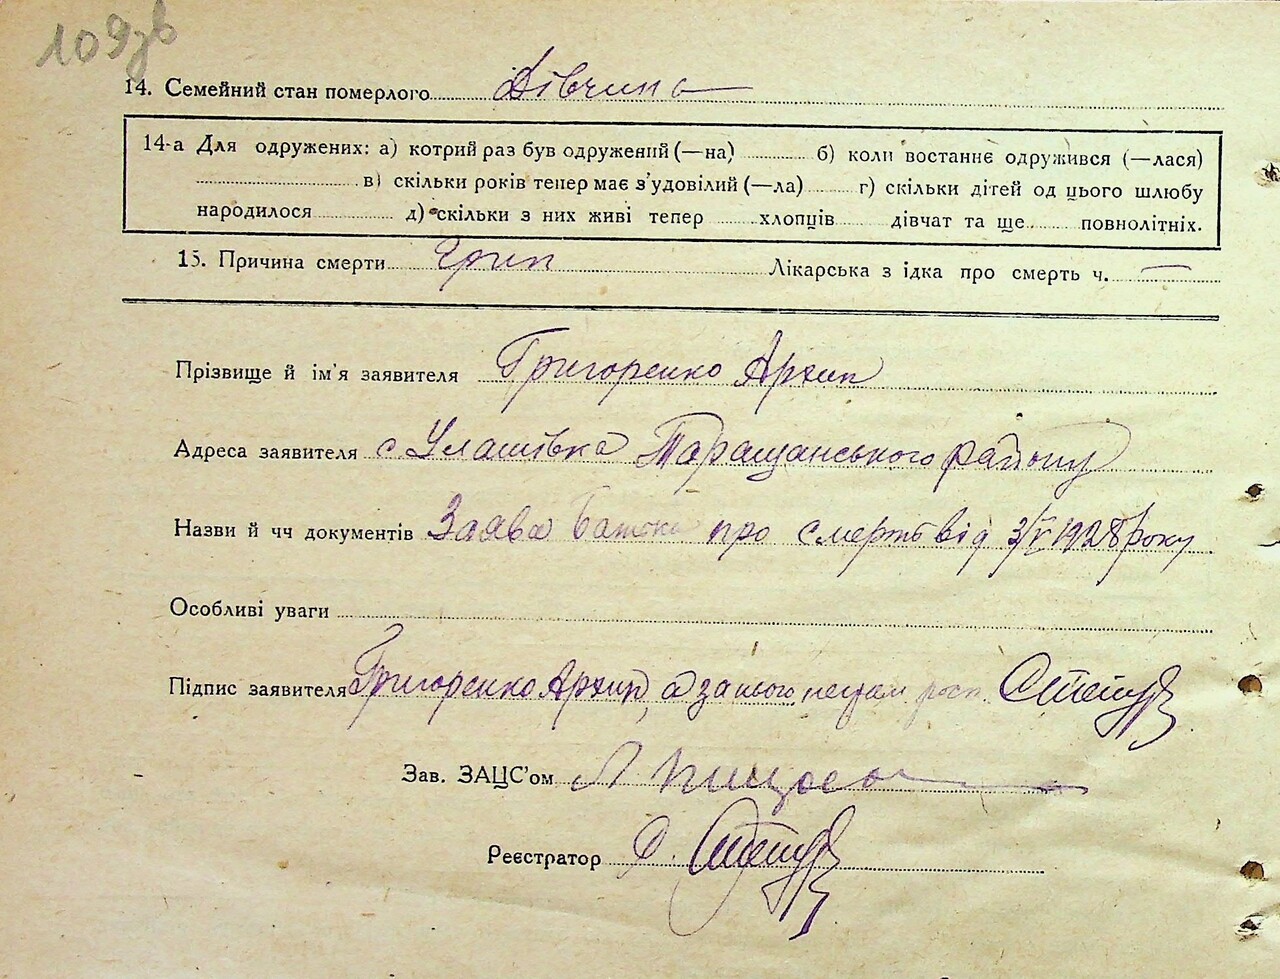 109зв
14. Семейний стан померлого Дівчина
14-а Для одружених: а) котрий раз був одружений (—на) б) коли востаннє одружився (—лася)
в) скільки років тепер має з'удовілий (—ла) г) скільки дітей од цього шлюбу
народилося д) скільки з них живі тепер хлопців дівчат та ще повнолітніх.
15. Причина смерти Грип Лікарська з ідка про смерть ч. —
Прізвище й ім'я заявителя Григоренко Архип
Адреса заявителя с. Улашівка Таращанського району
Назви й чч документів Заява Батька про смерть від 3/V 1928 року
Особливі уваги
Підпис заявителя Григоренко Архип, а за нього
Зав. ЗАЦС'ом
Реєстратор